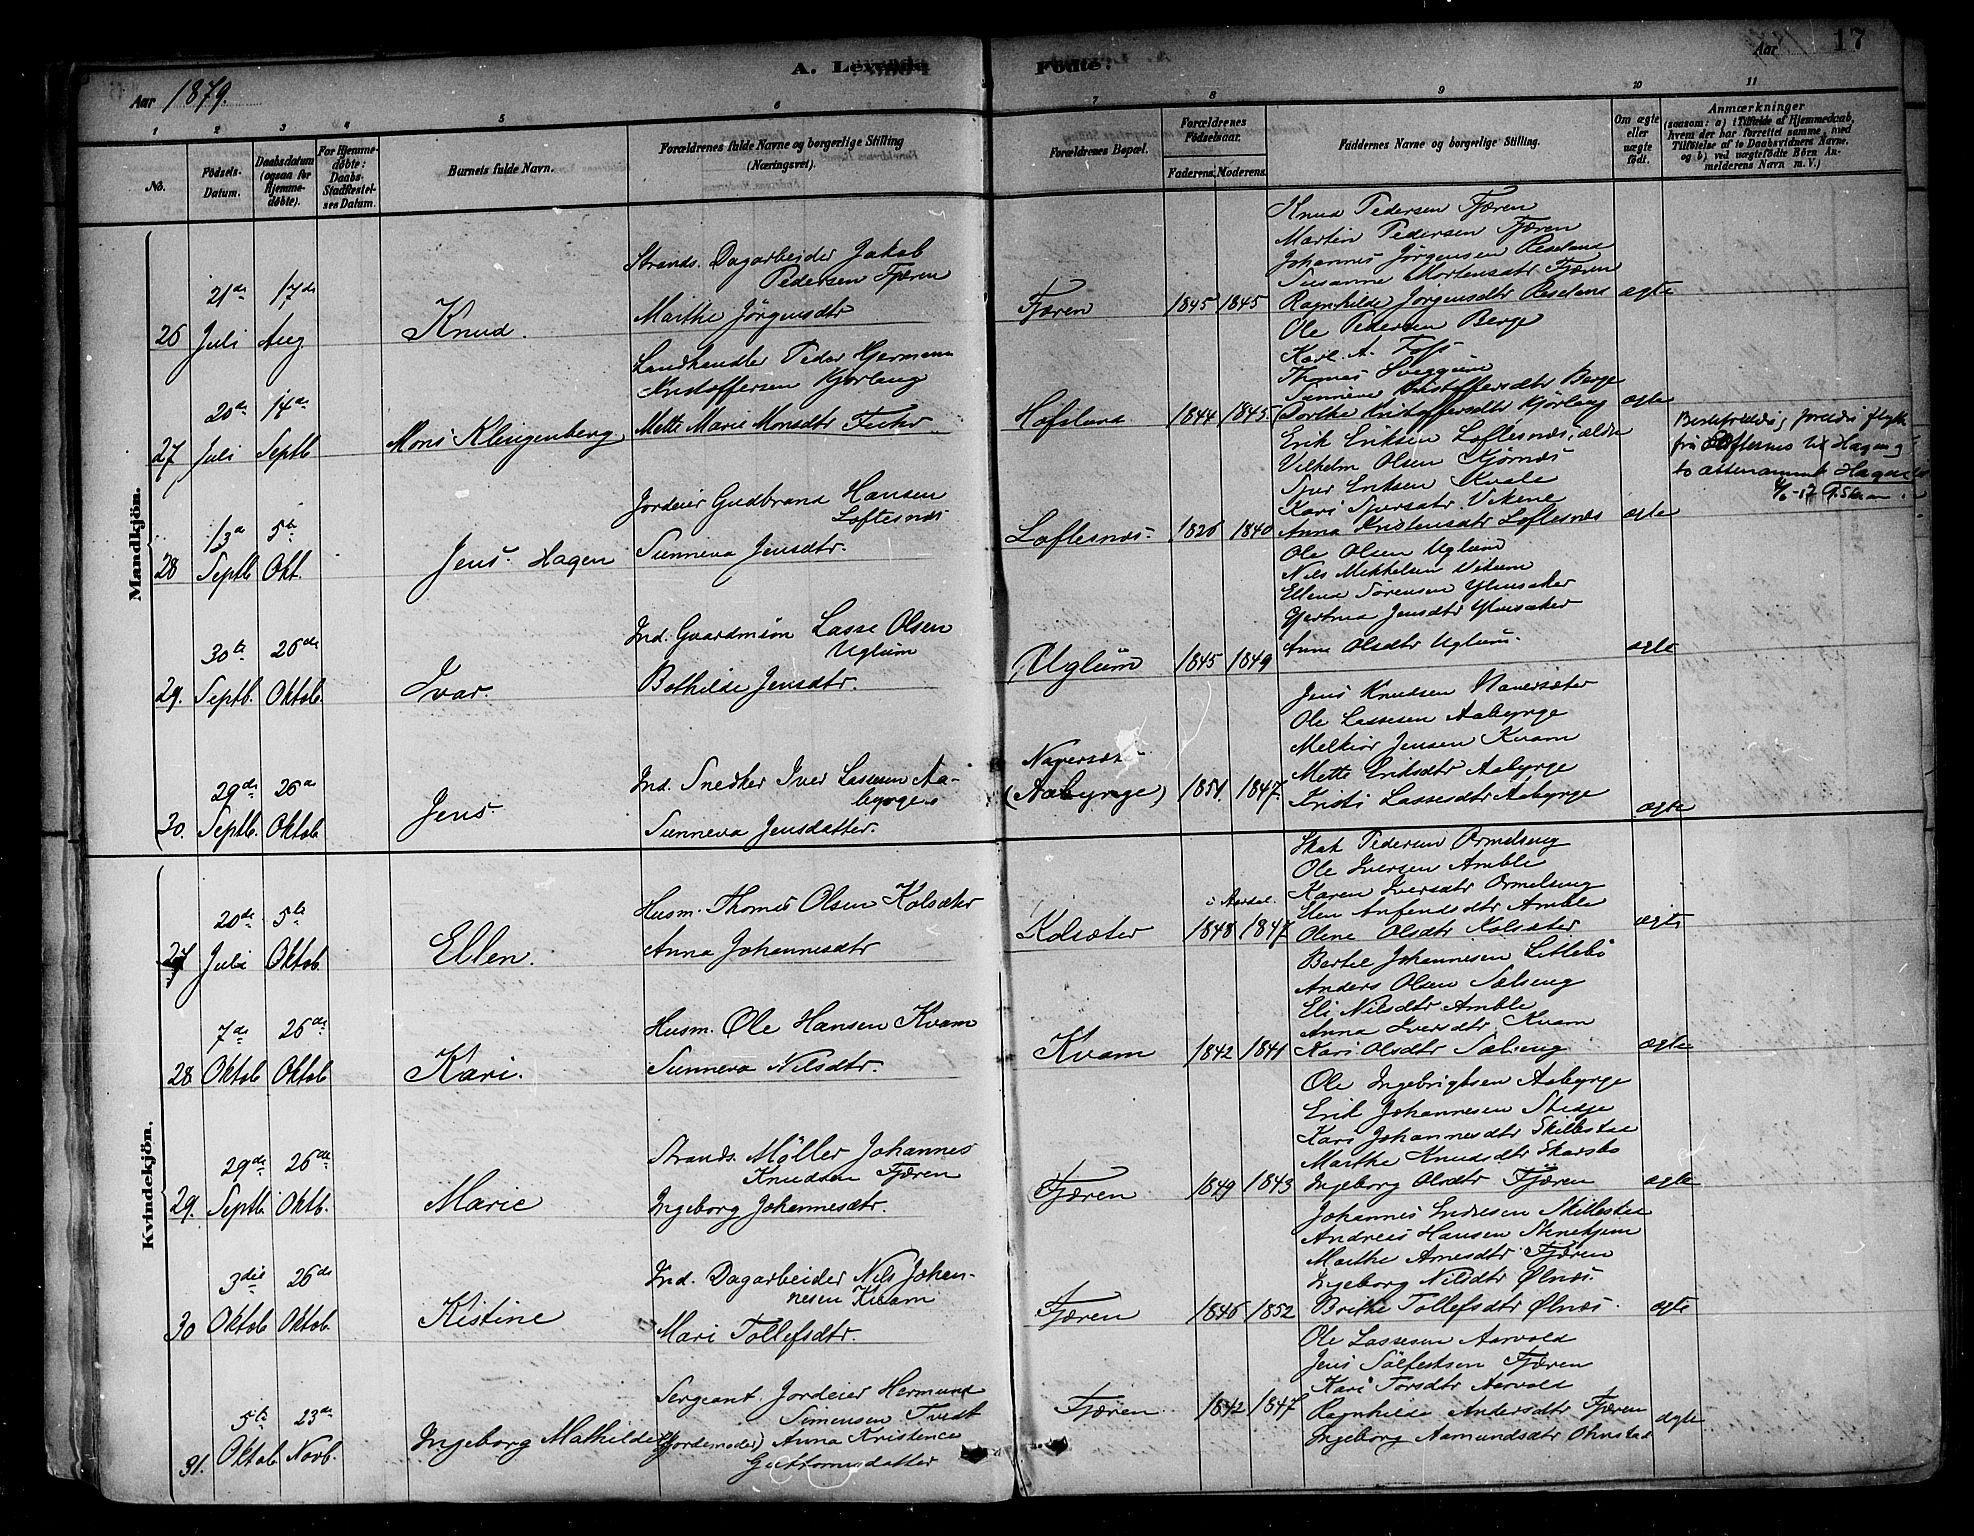 A. Levende Fødte.
Aar 1879.
Aar 17
1 2 3 4 5 6 7 8 9 10 11
No.
Fødsels-Datum.
Daabsdatum (ogsaa for Hjemmedøbte).
For Hjemmedøbte: Daabs-Stadfæstelses Datum.
Barnets fulde Navn.
Forældrenes fulde Navne og borgerlige Stilling
(Næringsvei).
Forældrenes Bopæl.
Forældrenes Fødselsaar.
Faderens. Moderens.
Faddernes Navne og borgerlige Stilling.
Om ægte eller uægte født.
Anmærkninger
(saasom: a) i Tilfælde af Hjemmedaab,
hvem der har forrettet samme, med
Tilføielse af to Daabsvidners Navne.
og b) ved uægtefødte Børn Anmelderens Navn m. V.)
Mandkjön.
26
21de Juli
17de Aug
Knud.
Strands. Dagarbeider Jakob
Pedersen Fjæren
Marthe Jörgensdtr
Fjæren
1845 1845
Knud Pedersen Fjæren
Martin Pedersen Fjæren
Johannes Jörgensen Reseland
Susanne Mortensdtr Fjæren
Ragnhilde Jörgensdtr Reseland
ægte
27
20de Juli
14de Septb
Mons Klingenberg
Landhandler Peder Hermann
Kristoffersen Kjörlaug
Mette Marie Monsdtr
Hofslund
1844 1845
Ole Pedersen Berge
Karl A. Foss
Thomas Sveggum
Kristoffersdtr Berge
Dorthe Kristoffersdtr Kjörlaug
ægte
28
13de Septb
5te Okt.
Jens. Hagen
Jordeier Gudbrand Hansen
Loftesnæs
Sunneva Jensdtr.
Loftesnæs.
1826 1840
Erik Eriksen Loftesnæs, ældre
Vilhelm Olsen Kjörnæs
Sjur Eriksen Kvale
Kari Sjursdtr Vikene
Anna Kristensdtr Loftesnæs
ægte
fra Loftesnes til Hagen
29.
30te Septb.
26de Oktob.
Ivar.
Ind. Gaardmand Lasse Olsen
Uglum
Bothilde Jensdtr.
Uglum
1845 1849
Ole Olsen Uglum
Nils Mikkelsen Vikum
Ellend Sørensen Ylvisaker
Gjertrud Jensdtr Ylvisaker
Anna Olsdtr Uglum.
ægte
30.
29de Septb.
26de Oktob.
Jens.
Ind. Snedker Iver Lassesen Aa-
byrge
Sunneva Jensdatter.
Naversæt
(Aabyrge)
1851. 1847.
Jens Knudsen Naversæter
Ole Lassesen Aabyrge
Melkior Jensen Kvam
Mette Eriksdtr Aabyrge
Kristi Lassesdtr Aabyrge
ægte
Kvindekjön.
27
20de Juli
5te Oktob.
Ellen.
Husm. Thomas Olsen Kolsæter
Anna Johannesdtr
Kolsæter
i Aardal.
1848 1847
Pedersen Ormelseng
Ole Iversen Amble
Karen Iversdtr Ormelseng
Elen Anfendsdtr Amble
Olene Olsdtr Kolsæter
ægte
28
7de Oktob
26de Oktob
Kari.
Husm. Ole Hansen Kvam
Sunneva Nilsdtr.
Kvam
1842 1841
Bertil Johannesen Litlebö
Anders Olsen Sælseng
Eli Nilsdtr Amble
Anna Iversdtr Kvam
Kari Olsdtr Sælseng
ægte
29.
29de Septb
26de Oktb.
Marie
Strands. Möller Johannes
Knudsen Fjæren
Ingeborg Johannesdtr.
Fjæren
1849 1843
Ole Ingebrigtsen Aabyrge
Erik Johannesen Stedje
Kari Johannesdtr Skillestad
Marthe Knudsdtr Skarsbö
Ingeborg Olsdtr Fjæren
ægte
30
3die Oktob
26de Oktob
Kistine
Ind. Dagarbeider Nils Johan-
nesen Kvam
Mari Tollefsdtr.
Fjæren
1846 1852
Johannes Endresen Skillestad
Andreas Hansen Stenehjem
Marthe Arnesdtr Fjæren
Ingeborg Nilsdtr Ølnæs.
Brithe Tollefsdtr Ølnæs.
ægte
31.
5te Oktob
23de Novb.
Ingeborg Mathilde
Sergeant Jordeier Hermund
Simensen Tvedt
(Jordemoder) Anna Kristence
Guttormsdatter
Fjæren
1842 1847
Ole Lassesen Aarvold
Jens Sölfestsen Fjæren
Kari Torsdtr Aarvold
Ragnhilde Andersdtr Fjæren
Ingeborg Aamundsdtr Ohnstad
ægte